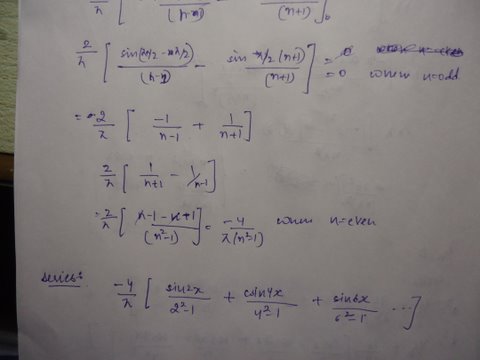 2/π [ (n-1) (n+1) ]₀
2/π [ sin(π/2 - nπ/2)/(n-1) - sin π/2 (n+1)/(n+1) ] = 0
= 0 when n=odd
= -2/π [ -1/n-1 + 1/n+1 ]
2/π [ 1/n+1 - 1/n-1 ]
= 2/π [ n-1-n+1/(n²-1) ] = -4/π(n²-1) when n=even
series:- -4/π [ sin2x/2²-1 + csin4x/4²-1 + sin6x/6²-1 ... ]